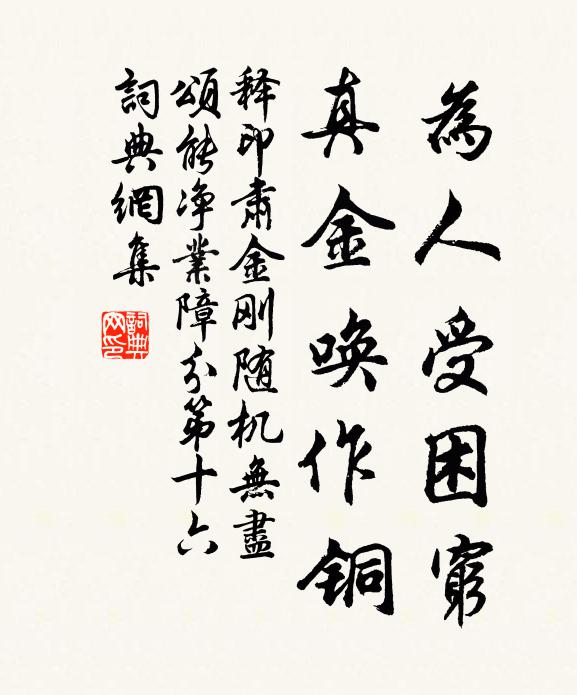 為人受困窮
真金唤作铜
释印肃金刚随机無盡
頌能净業障分第十六
詞典網集
詞典网印